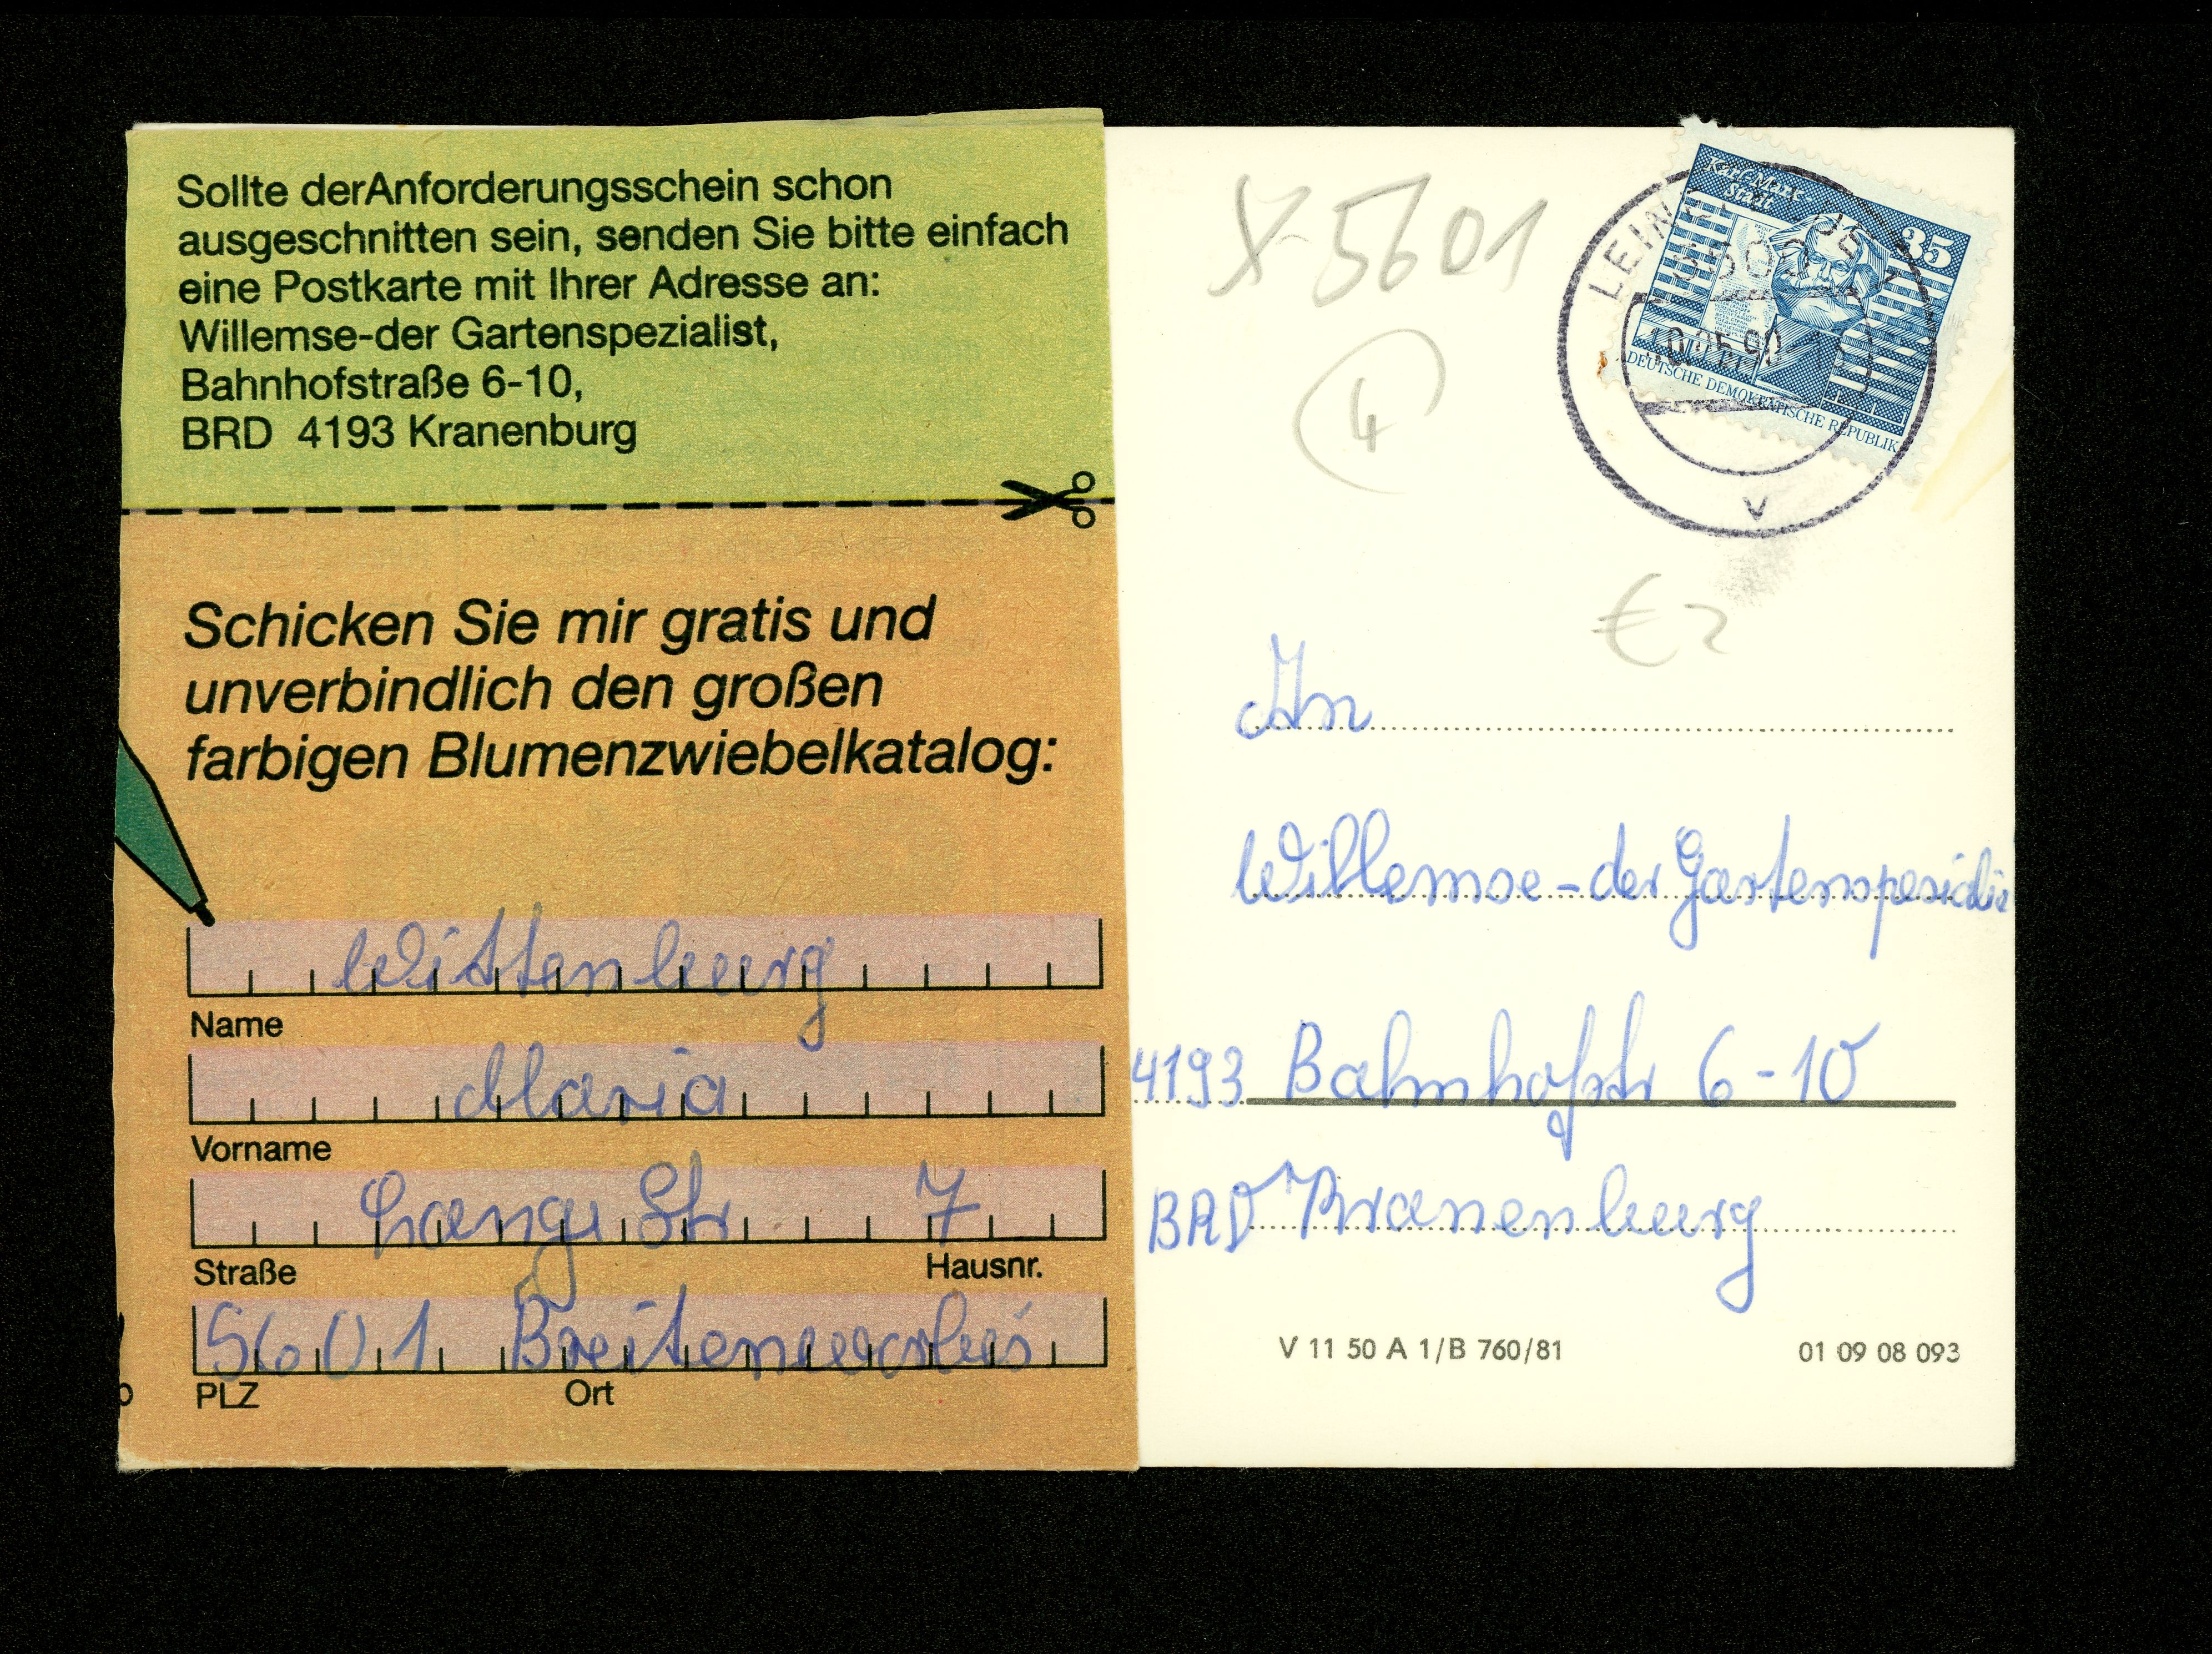 Sollte derAnforderungsschein schon
ausgeschnitten sein, senden Sie bitte einfach
eine Postkarte mit Ihrer Adresse an:
Willemse-der Gartenspezialist,
Bahnhofstraße 6-10,
BRD 4193 Kranenburg
Schicken Sie mir gratis und
unverbindlich den großen
farbigen Blumenzwiebelkatalog:
Wittenburg
Name
Maria
Vorname
Lange Str 7
Straße Hausnr.
5601 Breitenworbis
PLZ Ort
X-5601
4
Karl-Marx-
Stadt
35
DEUTSCHE DEMOKRATISCHE REPUBLIK
10.05.90
V
€ 2
An
Willemse-der Gartenspezialis
4193 Bahnhofstr 6-10
BRD Kranenburg
V 11 50 A 1/B 760/81 01 09 08 093